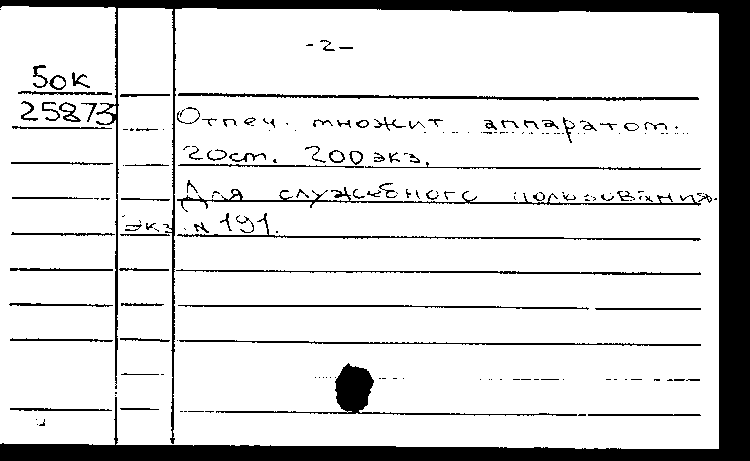 -2-
50К
25873
Отпеч. множит аппаратом.
20см. 200экз.
Для служебного пользования.
экз. N 191.